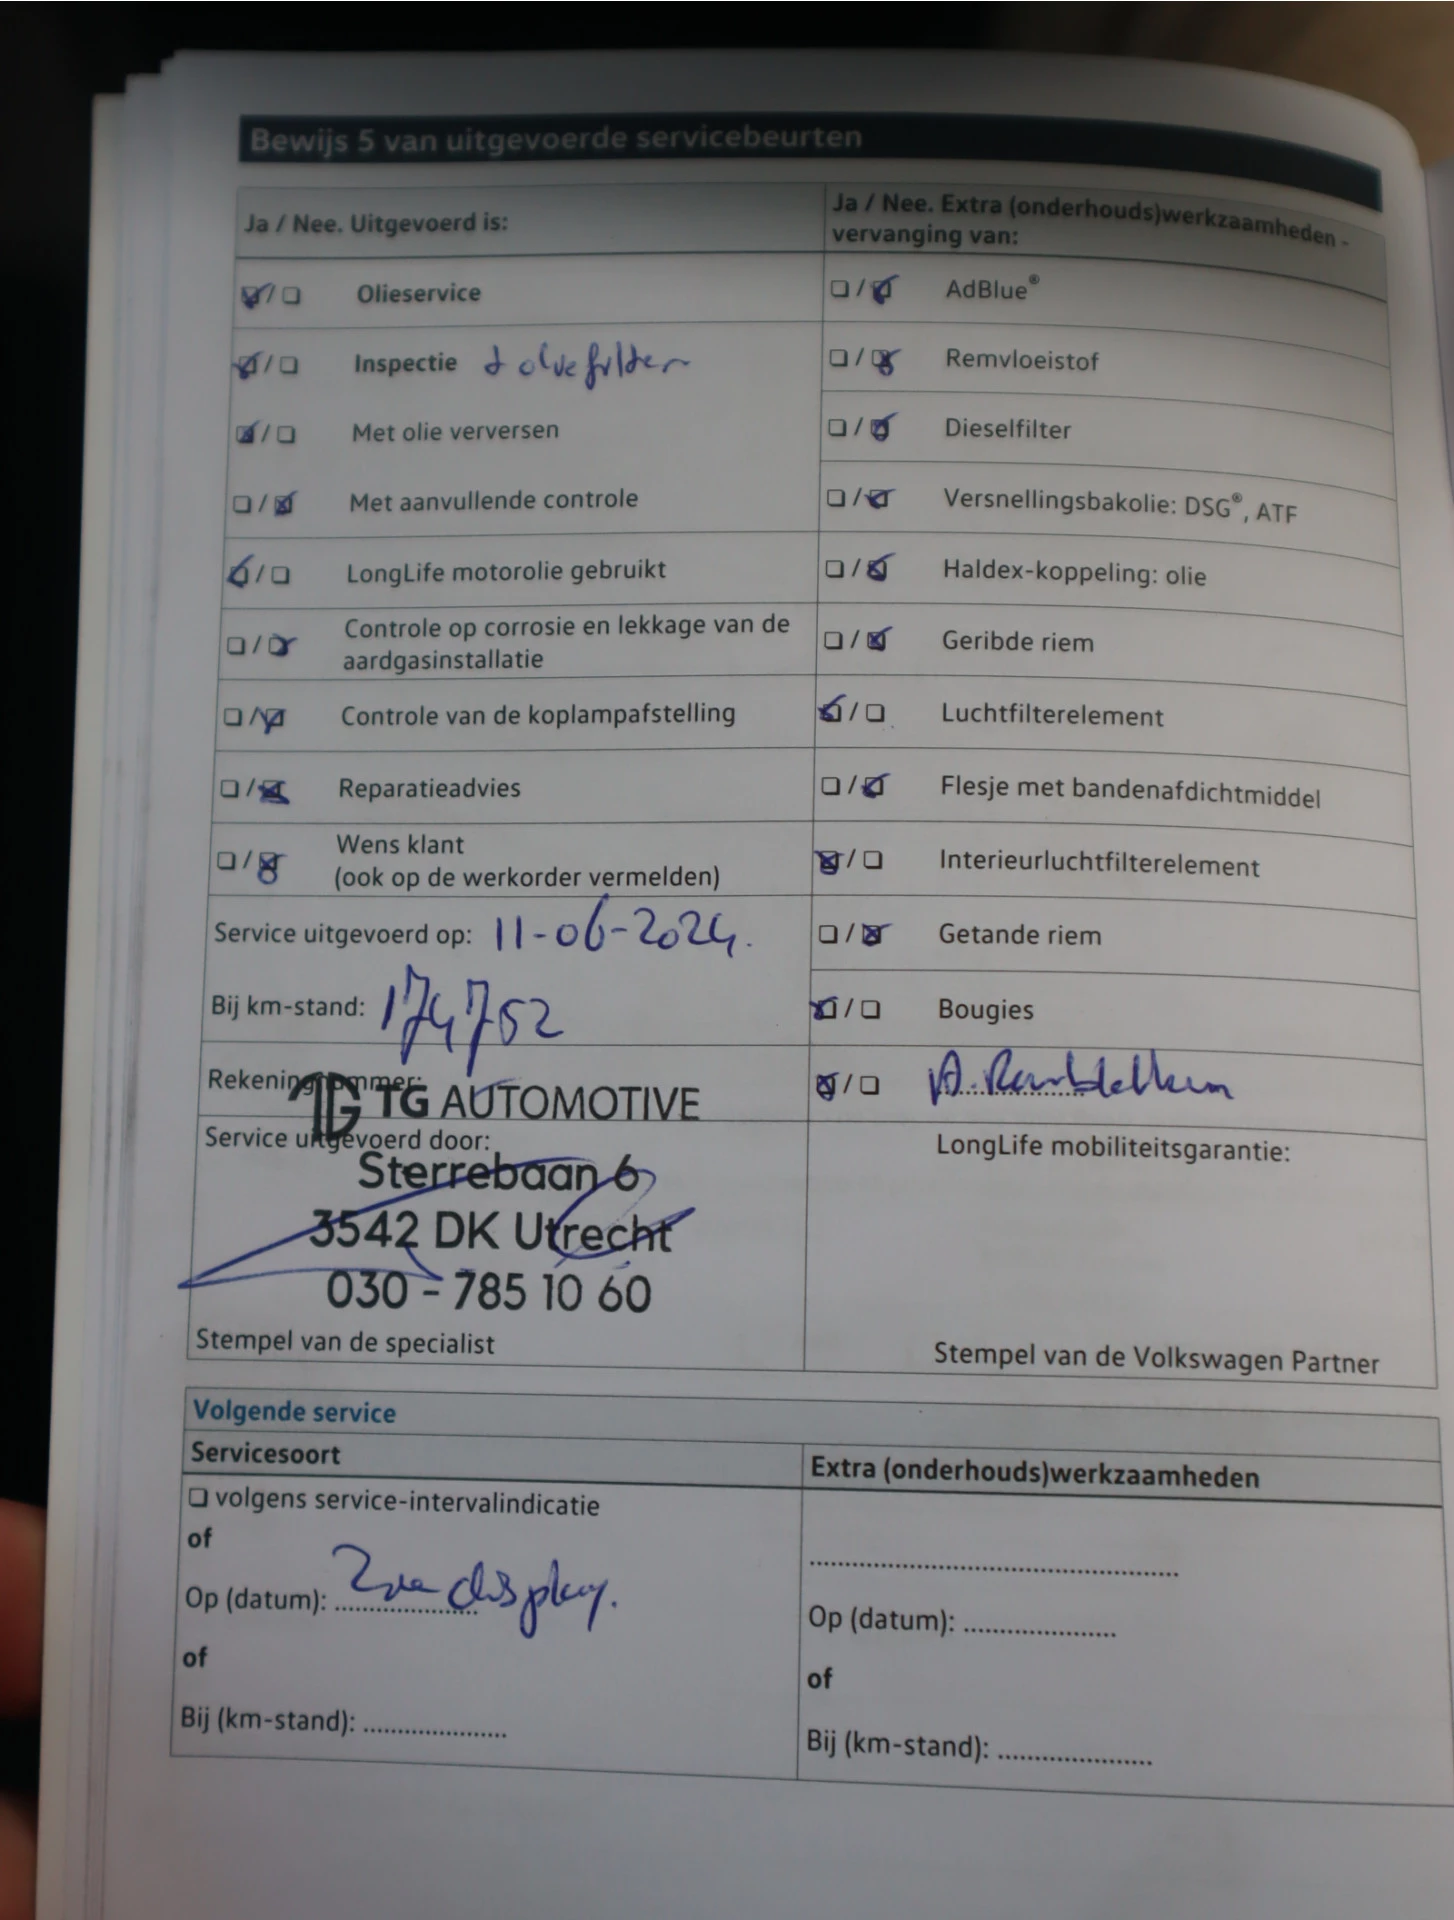 Bewijs 5 van uitgevoerde servicebeurten
Ja / Nee. Uitgevoerd is:
☑/☐ Olieservice
☑/☐ Inspectie + oliefilter
☑/☐ Met olie verversen
☐/☑ Met aanvullende controle
☑/☐ LongLife motorolie gebruikt
☐/☑ Controle op corrosie en lekkage van de
aardgasinstallatie
☐/☑ Controle van de koplampafstelling
☐/☑ Reparatieadvies
☐/☑ Wens klant
(ook op de werkorder vermelden)
Service uitgevoerd op: 11-06-2024.
Bij km-stand: 174752
Rekeningnummer:
TG AUTOMOTIVE
Service uitgevoerd door:
Sterrebaan 6
3542 DK Utrecht
030 - 785 10 60
Stempel van de specialist
Ja / Nee. Extra (onderhouds)werkzaamheden -
vervanging van:
☐/☑ AdBlue®
☐/☑ Remvloeistof
☐/☑ Dieselfilter
☐/☑ Versnellingsbakolie: DSG®, ATF
☐/☑ Haldex-koppeling: olie
☐/☑ Geribde riem
☑/☐ Luchtfilterelement
☐/☑ Flesje met bandenafdichtmiddel
☑/☐ Interieurluchtfilterelement
☐/☑ Getande riem
☑/☐ Bougies
☑/☐
LongLife mobiliteitsgarantie:
Stempel van de Volkswagen Partner
Volgende service
Servicesoort
☐ volgens service-intervalindicatie
of
Op (datum): Zie display.
of
Bij (km-stand): ....................
Extra (onderhouds)werkzaamheden
....................
Op (datum): ....................
of
Bij (km-stand): ....................